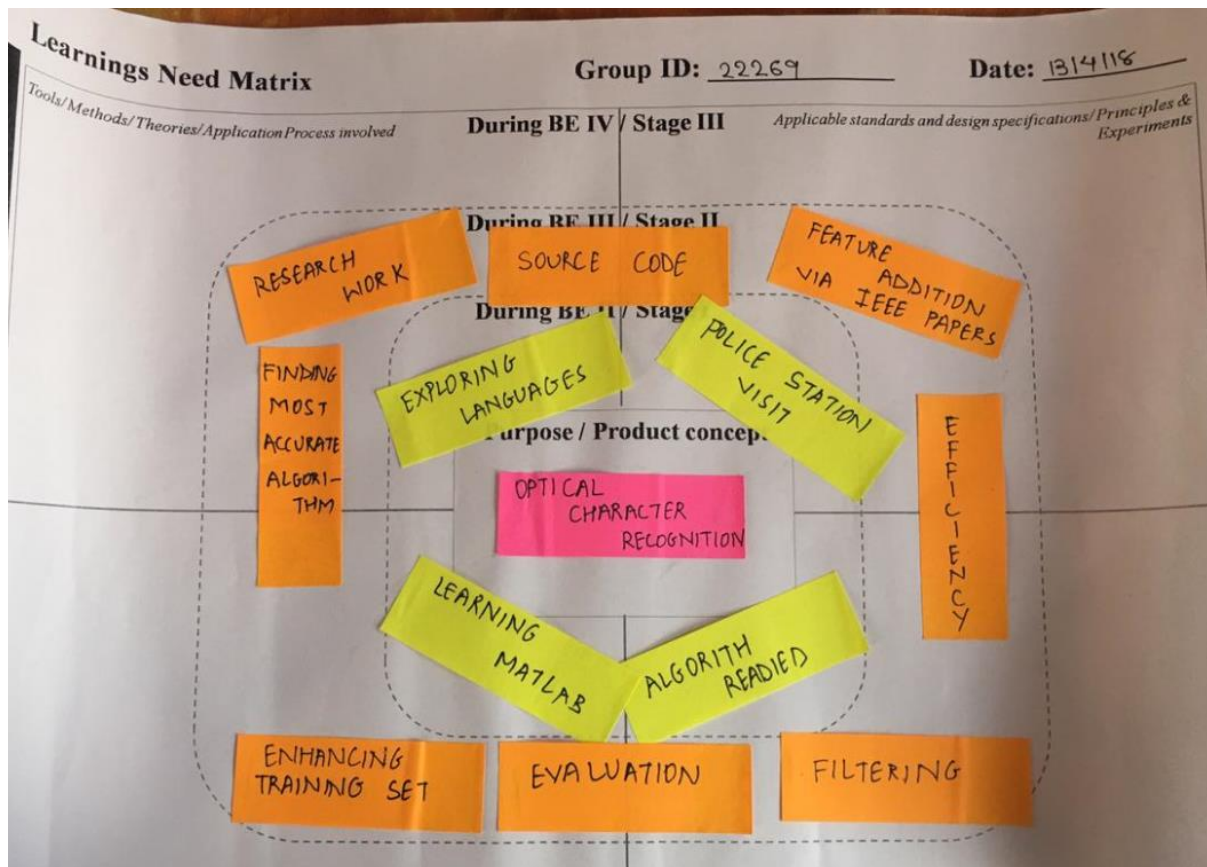 Learnings Need Matrix
Group ID: 22269
Date: 13/4/18
Tools/Methods/Theories/Application Process involved
During BE IV / Stage III
Applicable standards and design specifications/Principles &
Experiments
During BE III / Stage II
RESEARCH
WORK
SOURCE CODE
FEATURE
ADDITION
VIA IEEE PAPERS
During BE II / Stage
EXPLORING
LANGUAGES
POLICE STATION
VISIT
FINDING
MOST
ACCURATE
ALGORI-
THM
Purpose / Product concep
EFFICIENCY
OPTICAL
CHARACTER
RECOGNITION
LEARNING
MATLAB
ALGORITH
READIED
ENHANCING
TRAINING SET
EVALUATION
FILTERING